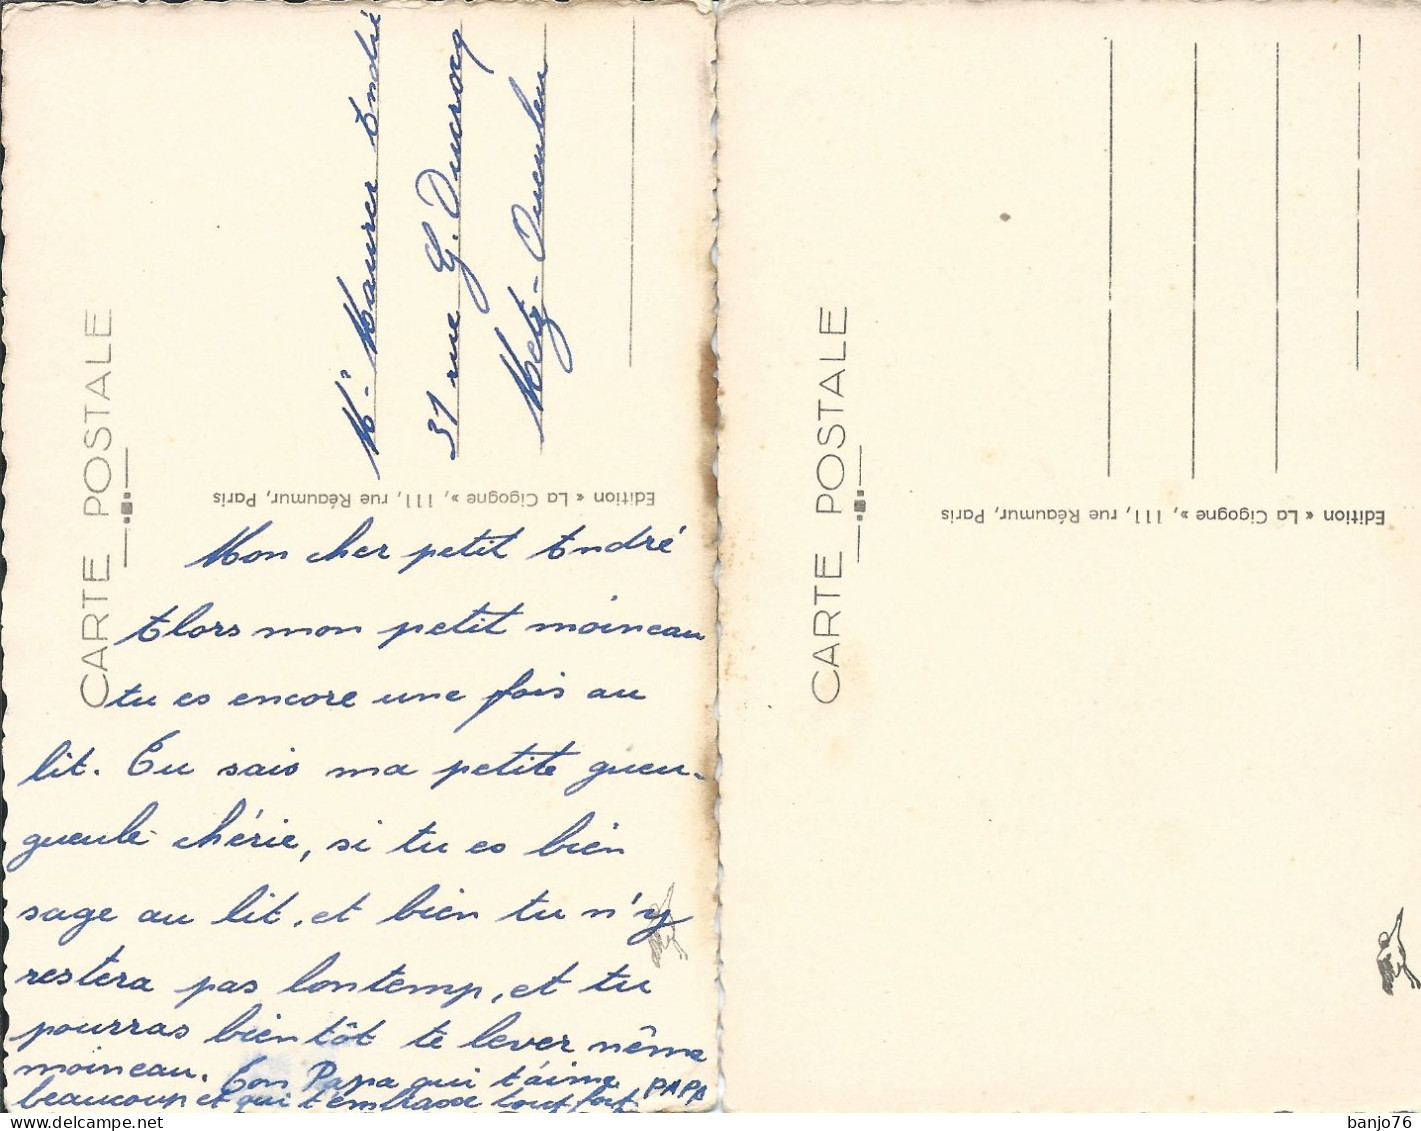 CARTE POSTALE
Mr Maurer André
31 rue G. Ducrocq
Metz-Queuleu
Edition « La Cigogne », 111, rue Réaumur, Paris
Mon cher petit André
Alors mon petit moineau
tu es encore une fois au
lit. Tu sais ma petite gueu-
gueule chérie, si tu es bien
sage au lit, et bien tu n'y
restera pas lontemp, et tu
pourras bientôt te lever même
moineau. Ton Papa qui t'aime PAPA
beaucoup et qui t'embrasse tout fort
CARTE POSTALE
Edition « La Cigogne », 111, rue Réaumur, Paris
www.delcampe.net
banjo76